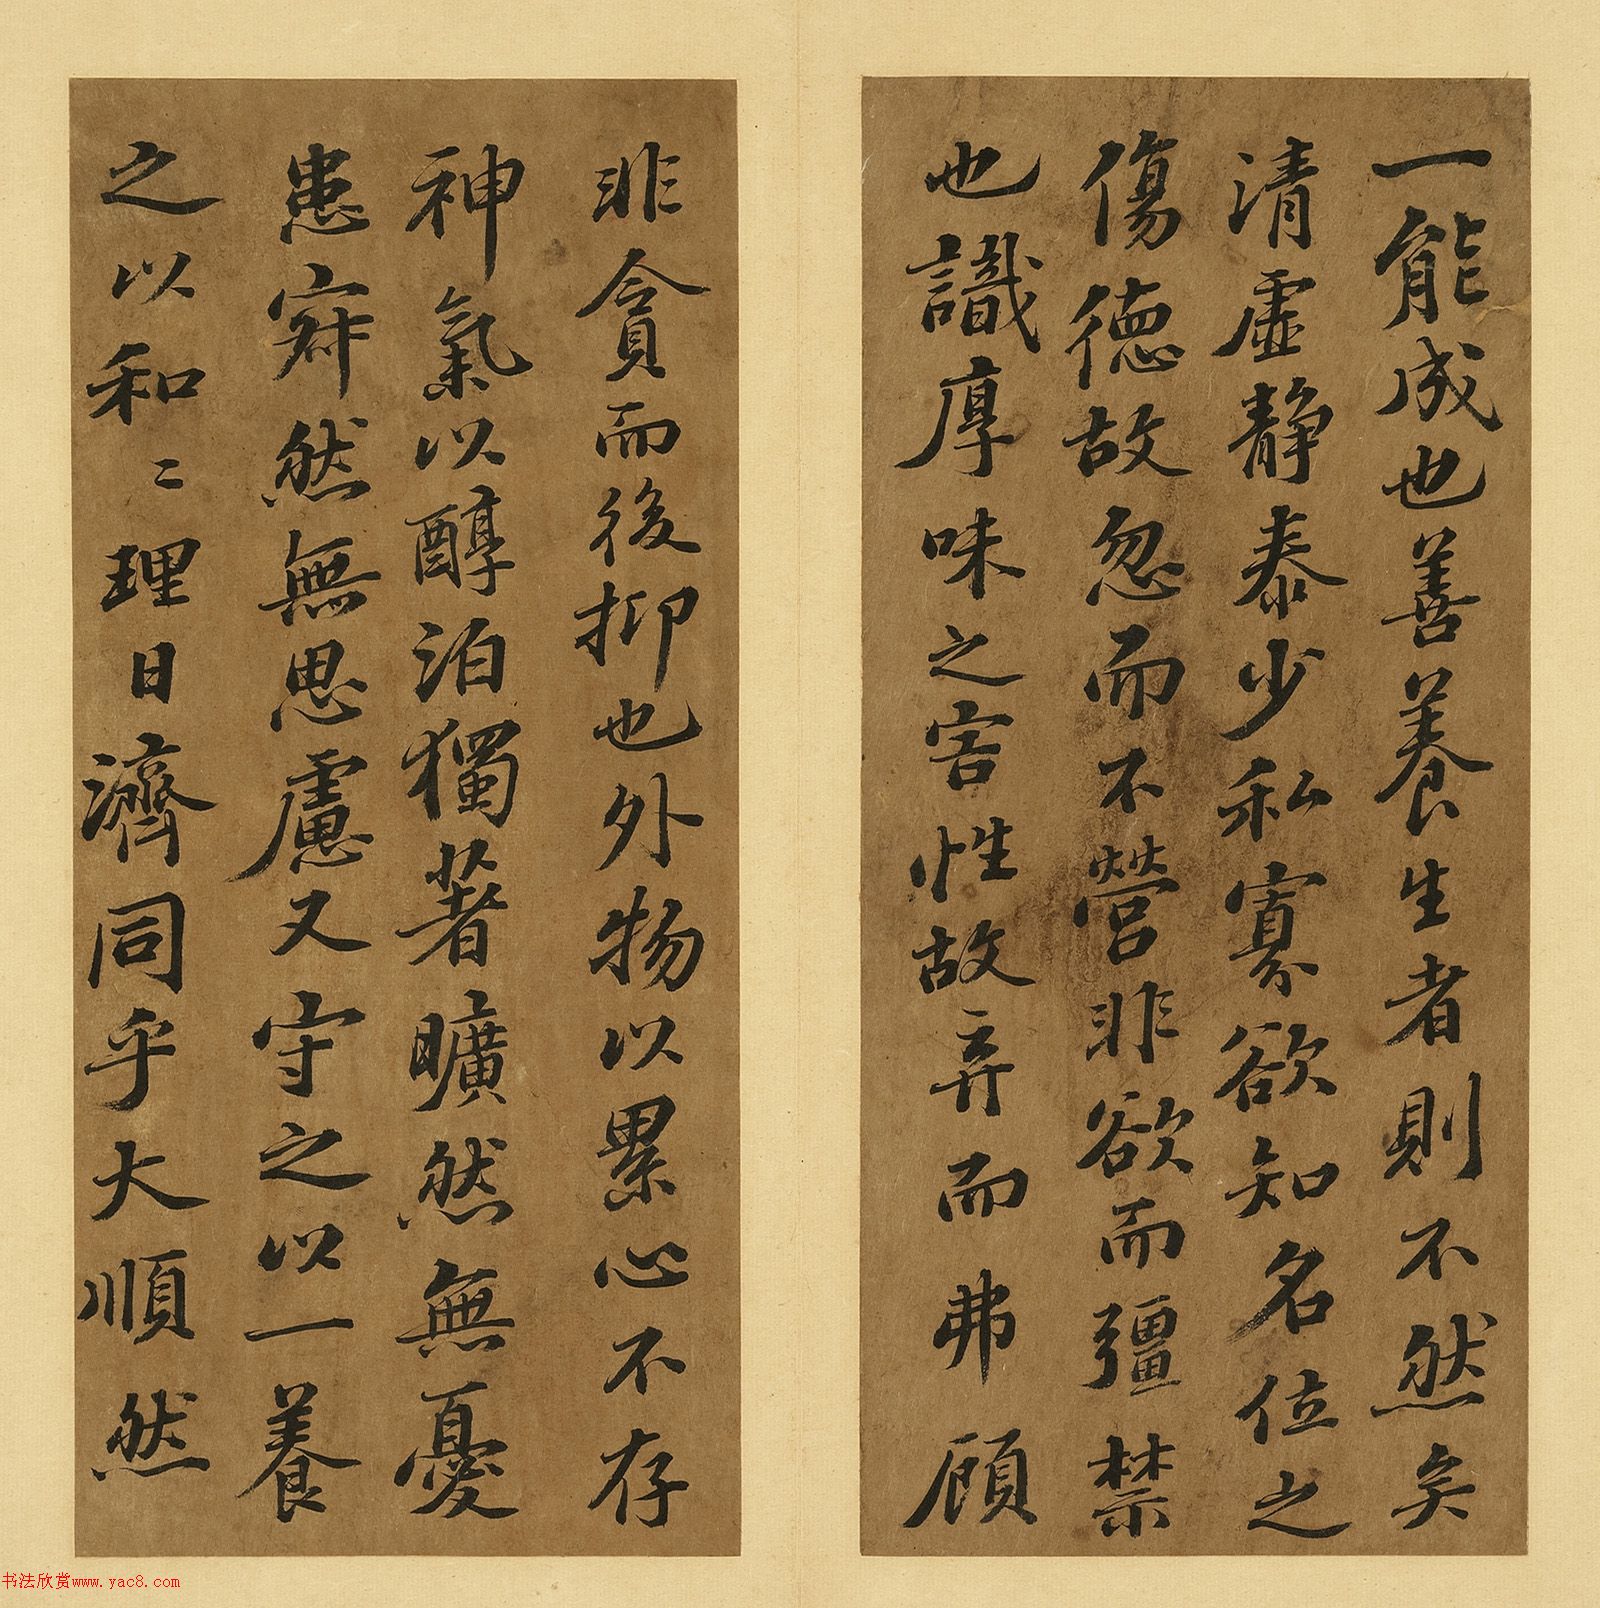 一能成也善養生者則不然矣
清虛静泰少私寡欲知名位之
傷德故忽而不營非欲而彊禁
也識厚味之害性故弃而弗顧
非貪而後抑也外物以累心不存
神氣以醇泊獨著曠然無憂
患寂然無思慮又守之以一養
之以和〻理日濟同乎大順然
书法欣赏www.yac8.com